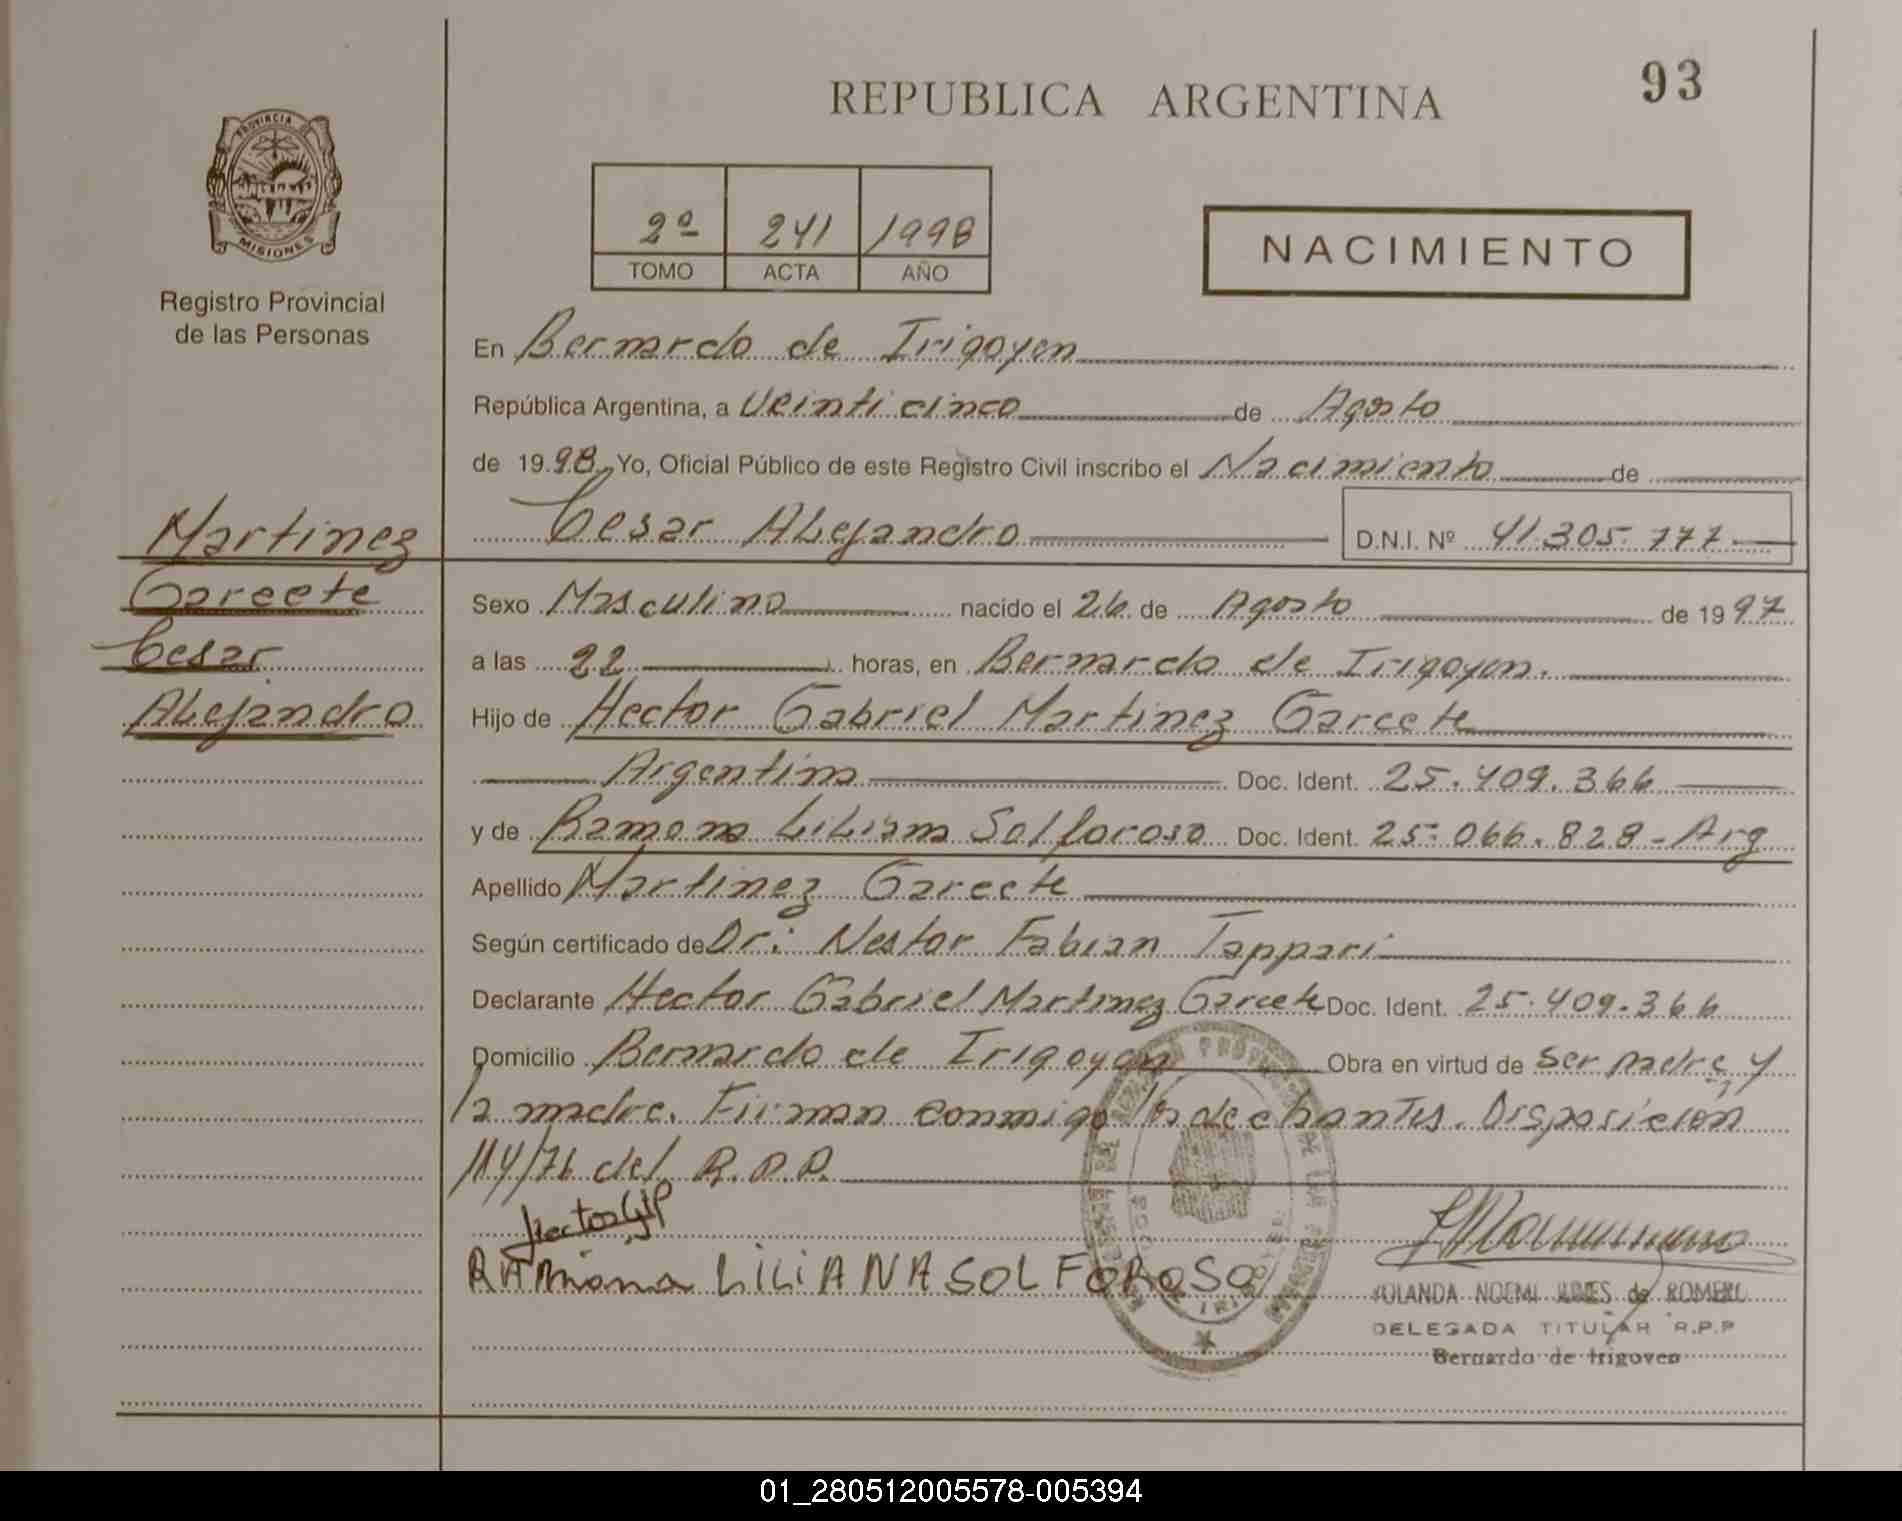 REPUBLICA ARGENTINA
93
PROVINCIA DE
MISIONES
Registro Provincial
de las Personas
2º 241 1998
TOMO ACTA AÑO
NACIMIENTO
En Bernardo de Irigoyen
República Argentina, a Veinticinco de Agosto
de 1998 Yo, Oficial Público de este Registro Civil inscribo el Nacimiento de
Cesar Alejandro D.N.I. Nº 41.305.777
Martinez
Garcete
Cesar
Alejandro
Sexo Masculino nacido el 26 de Agosto de 1997
a las 22 horas, en Bernardo de Irigoyen.
Hijo de Hector Gabriel Martinez Garcete
Argentina Doc. Ident. 25.409.366
y de Ramona Liliana Solforoso Doc. Ident. 25.066.828 - Arg
Apellido Martinez Garcete
Según certificado de Dr: Nestor Fabian Tappari
Declarante Hector Gabriel Martinez Garcete Doc. Ident. 25.409.366
Domicilio Bernardo de Irigoyen Obra en virtud de ser padre y
la madre. Firman conmigo los declarantes. Disposición
114/76 del R.P.P.
Hector
RAMona LILIANA SOLFOROSO
YOLANDA NOEMI de ROMERO
DELEGADA TITULAR R.P.P
Bernardo de Irigoyen
01_280512005578-005394